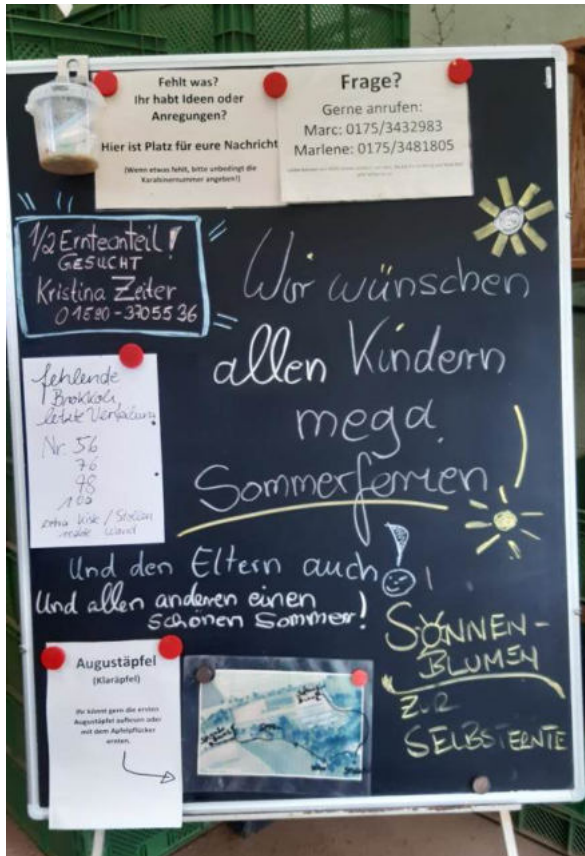 Fehlt was?
Ihr habt Ideen oder
Anregungen?
Hier ist Platz für eure Nachricht
(Wenn etwas fehlt, bitte unbedingt die
Karabinernummer angeben!)
Frage?
Gerne anrufen:
Marc: 0175/3432983
Marlene: 0175/3481805
1/2 Ernteanteil!
GESUCHT
Kristina Zeiter
01590-3705536
Wir wünschen
allen Kindern
mega
Sommerferien
fehlende
Brokkoli
letzte Verteilung
Nr. 56
76
98
100
extra Kiste /
Wand
Und den Eltern auch!
Und allen anderen einen
schönen Sommer!
SONNEN-
BLUMEN
ZUR
SELBSTERNTE
Augustäpfel
(Kläräpfel)
Ihr könnt gern die ersten
Augustäpfel auflesen oder
mit dem Apfelpflücker
ernten.